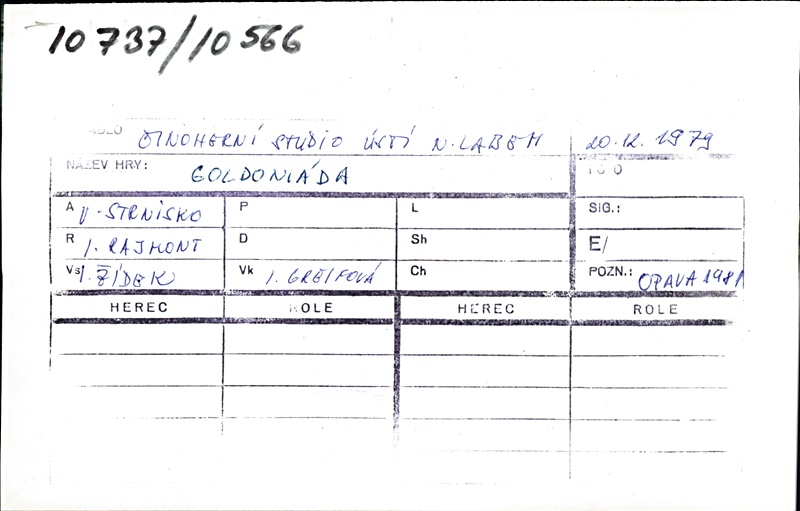 10737/10566
ADLO ČINOHERNÍ STUDIO ÚSTÍ N. LABEM 20.12.1979
NÁZEV HRY: GOLDONIÁDA
A V. STRNISKO P L SIG.:
R I. RAJMONT D Sh E/
Vs I. ŽÍDEK Vk I. GREIFOVÁ Ch POZN.: OPAVA 1981
HEREC ROLE HEREC ROLE